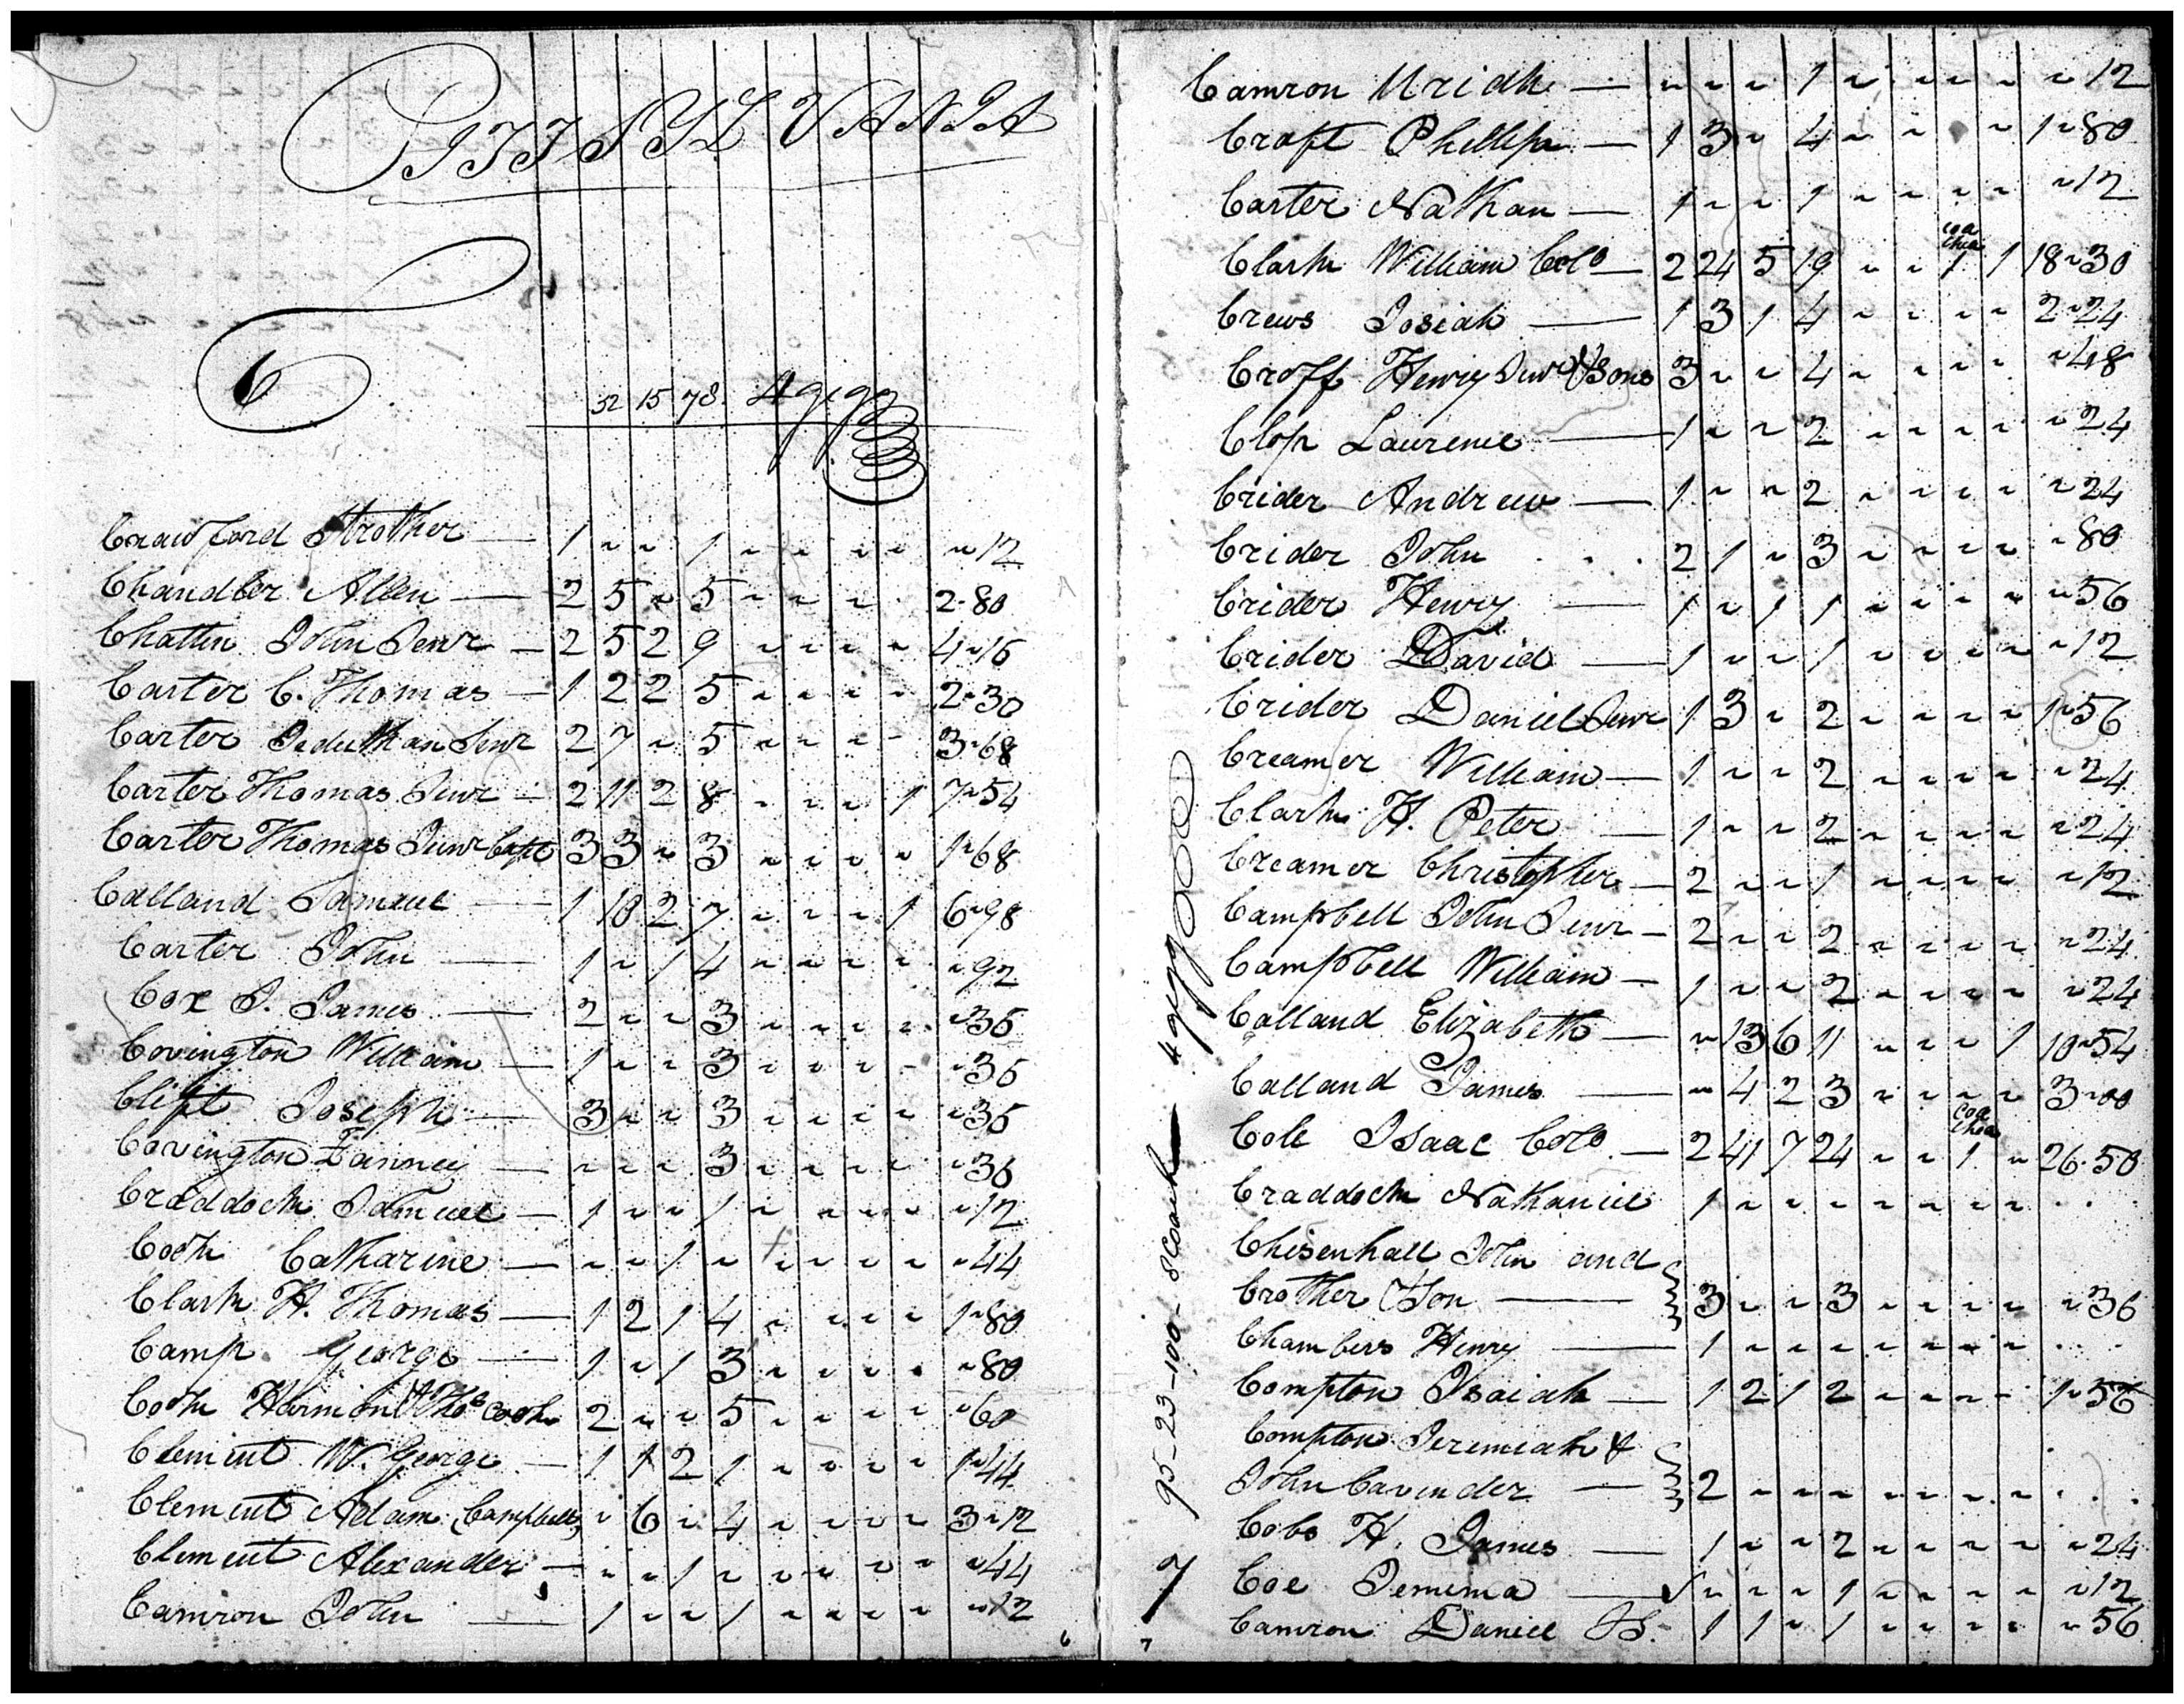 PITTSYLVANIA
C
52 15 78. 4 gigs
Crawford Strother — 1 " " 1 " " " " " 12
Chandler Allen — 2 5 " 5 " " " . 2. 80
Chattin John Senr — 2 5 2 9 " " " " 4 " 16
Carter C. Thomas — 1 2 2 5 " " " " 2 " 30
Carter Jeduthan Senr 2 7 " 5 " " " " 3 " 68
Carter Thomas Junr — 2 11 2 8 " " " 1 7 " 54
Carter Thomas Junr Capt 3 3 " 3 " " " " 1 " 68
Calland Samuel — 1 10 2 7 " " " 1 6 " 98
Carter John — 1 " 1 4 " " " " " 92
Cox J. James — 2 " " 3 " " " " " 36
Covington William — 1 " " 3 " " " " " 36
Clift Joseph — 3 " " 3 " " " " " 36
Covington Fanney — " " " 3 " " " " " 36
Craddock Samuel — 1 " " 1 " " " " " 12
Cook Catharine — " " 1 " " " " " " 44
Clark H. Thomas — 1 2 1 4 " " " " 1 " 80
Camp George — 1 " 1 3 " " " " " 80
Cook Harmon & Thos Cook 2 " " 5 " " " " " 60
Clement W. George — 1 1 2 1 " " " " 1 " 44
Clement Adam (Campbell) " 6 " 4 " " " " 3 " 12
Clement Alexander — " " 1 " " " " " " 44
Camron John — 1 " " 1 " " " " " 12
6
Camron Uriah — " " " 1 " " " " " 12
Craft Phillip — 1 3 " 4 " " " " 1 " 80
Carter Nathan — 1 " " 1 " " " " " 12
coa
chea
Clark William Colo — 2 24 5 19 " " 1 1 18 " 30
Crews Josiah — 1 3 1 4 " " " " 2 " 24
Croff Henry Junr & Sons 3 " " 4 " " " " " 48
Clop Laurence — 1 " " 2 " " " " " 24
Crider Andrew — 1 " " 2 " " " " " 24
Crider John . . . 2 1 " 3 " " " " " 80
Crider Henry — 1 " 1 1 " " " " " 56
Crider David — 1 " " 1 " " " " " 12
Crider Daniel Senr 1 3 " 2 " " " " 1 " 56
Creamer William — 1 " " 2 " " " " " 24
Clark H. Peter — 1 " " 2 " " " " " 24
Creamer Christopher — 2 " " 1 " " " " " 12
Campbell John Senr — 2 " " 2 " " " " " 24
Campbell William — 1 " " 2 " " " " " 24
Calland Elizabeth — " 13 6 11 " " " 1 10 " 54
Calland James — " 4 2 3 " " " " 3 " 00
coa
chea
Cole Isaac Colo. — 2 41 7 24 " " 1 " 26. 50
Craddock Nathaniel 1 " " " " " " " . .
Chisenhall John and
Crother & Son — 3 " " 3 " " " " " 36
Chambers Henry — 1 " " " " " " " . . .
Compton Isaiah — 1 2 1 2 " " " " 1 " 56
Compton Jeremiah &
John Cavinder — 2 " " " " " " " . . .
Cobs H. James — 1 " " 2 " " " " " 24
Coe Jemima — " " " 1 " " " " " 12
Camron Daniel B. — 1 1 " 1 " " " " " 56
95 - 23 - 100 - — 4 gigs
7
7